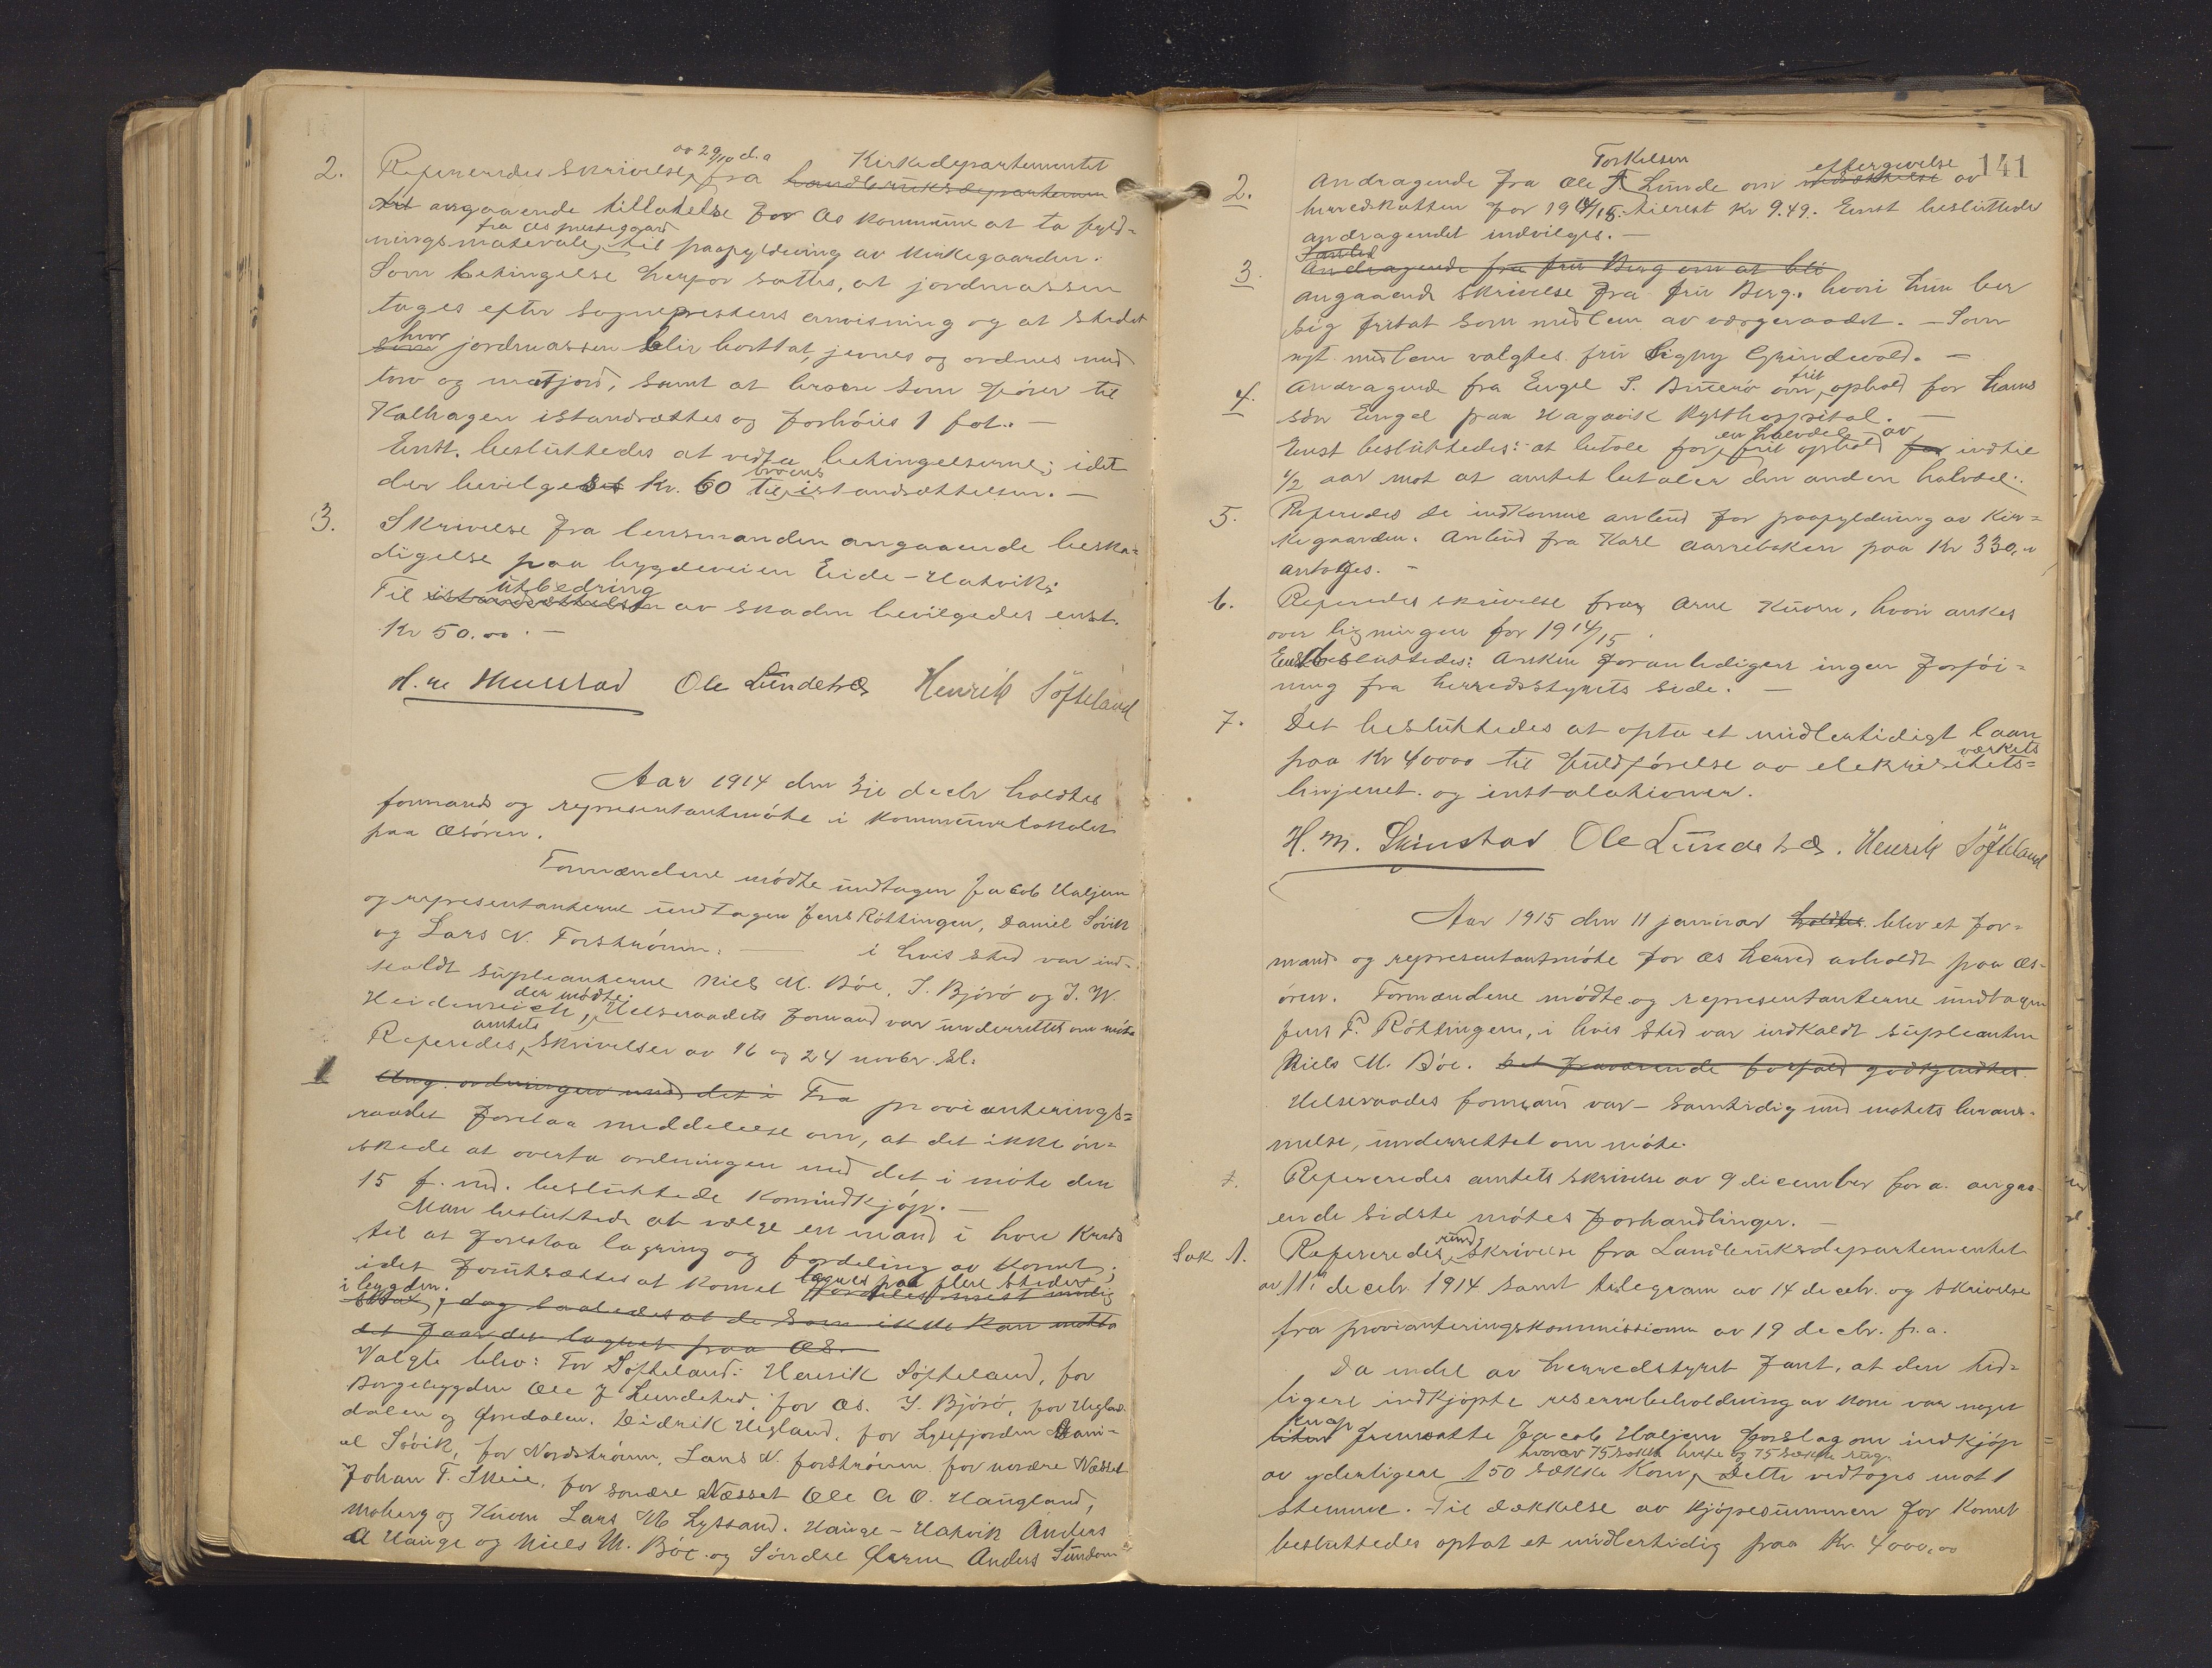 2. Refereredes skrivelse av 29/10 d.a fra Kirkedepartementet
angaaende tillatelse for Os kommune at ta fyld-
ningsmateriale fra Os prestegaard til paafyldning av kirkegaarden.
Som betingelse herfor sattes, at jordmassen
tages efter sogneprestens anvisning og at stedet
hvor jordmassen blir borttat, jevnes og ordnes med
torv og matjord, samt at broen som fører til
Kalhagen istandsættes og forhøies 1 fot. —
Enst. besluttedes at vedta betingelserne; idet
der bevilgedes Kr. 60 til broens istandsættelsen. —
3. Skrivelse fra lensmanden angaaende beska-
digelse paa bygdeveien Eide-Hatvik.
Til utbedring av skaden bevilgedes enst.
Kr 50.00. —
Ole Lundetræ Henrik Søfteland
Aar 1914 den 3je decbr holdtes
formands og representantmøte i kommunelokalet
paa Osøren.
Formændene mødte undtagen Jacob Haljem
og representanterne undtagen Jens Røttingen, Daniel Søvik
og Lars N. Forstrønen: — i hvis sted var ind-
kaldt supleanterne Niels M. Bøe, J. Bjørø og J. W.
Heidenreich, der mødte. Helseraadets formand var underrettet om møte
Referedes amtets skrivelser av 16 og 24 novbr. sl.
1 Ang. ordningen med det i Fra provianterings-
raadet forelaa meddelelse om, at det ikke øn-
skede at overta ordningen med det i møte den
15 f. md. besluttede kornindkjøp. —
Man besluttede at vælge en mand i hver kreds
til at forestaa lagring og fordeling av kornet,
idet forutsættes at kornet lagres paa flere steder
i bygden.
det faar den lagret paa Os.
Valgte blev: For Søfteland: Henrik Søfteland, for
Borgebygden Ole J Lundetræ, for Os. J. Bjørø, for Hegland-
dalen og Øvredalen. Didrik Hegland, for Lysefjorden Dani-
el Søvik, for Nordstrønen, Lars N. forstrønen for nordre Næsset
Johan T. Skeie, for søndre Næsset Ole A O. Haugland,
Moberg og Kuven Lars M Lyssand. Hauge-Hatvik Anders
A Hauge og Niels M. Bøe og Søndre Anders Sundøen
141
2. Andragende fra Ole Torkelsen Lunde om eftergivelse av
herredskatten for 1914/15. tilrest Kr 9.49. Enst besluttedes
andragendet indvilges. —
3. Andragende fra fru Berg om at bli
angaaende skrivelse fra fru Berg. hvori hun ber
sig fritat som medlem av værgeraadet. — Som
nyt medlem valgtes fru Signy Grindevold. —
4. Andragende fra Engel S. om frit ophold for hans
søn Engel paa Hagavik Kysthospital. —
Enst besluttedes: at betale for en halvdel av frit ophold indtil
1/2 aar mot at amtet betaler den anden halvdel.
5. Referedes de indkomne anbud for paafyldning av kir-
kegaarden. Anbud fra Karl Aarrebakken paa Kr 330,00
antoges. —
6. Referedes skrivelse fra Arne Kuven, hvori ankes
over ligningen for 1914/15.
Enst besluttedes: Anken foranlediger ingen forføi-
ning fra herredsstyrets side. —
7. Det besluttedes at opta et midlertidigt laan
paa Kr 40000 til fuldførelse av elektricitets-
værkets linjenet og installationer.
Ole Lundetræ. Henrik Søfteland
Aar 1915 den 11 januar holdtes blev et for-
mands og representantmøte for Os herred avholdt paa Os-
øren. Formændene mødte og representanterne undtagen
Jens F. Røttingen, i hvis sted var indkaldt supleanten
Niels M. Bøe. Det fraværende forfald godkjendtes.
Helseraades formann var — samtidig med møtets beram-
melse, underrettet om møte.
Refereredes amtets skrivelse av 9 december for a. angaa-
ende sidste møtes forhandlinger. —
Sak 1. Refereredes rundskrivelse fra Landbruksdepartementet
av 11te decbr. 1914 samt telegram av 14 decbr. og skrivelse
fra provianteringskommissionen av 19 decbr. f. a.
Da endel av herredstyret fant, at den tid-
ligere indkjøpte reservebeholdning av korn var noget
knap fremsatte Jacob Haljem forslag om indkjøp
av yderligere 150 sække korn, hvorav 75 sække hvete og 75 sække rug. Dette vedtoges mot 1
stemme. Til dækkelse av kjøpesummen for kornet
besluttedes optat et midlertidig paa Kr. 4000,00